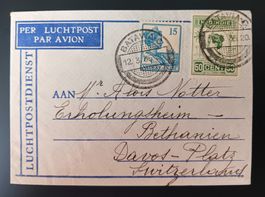 PER LUCHTPOST
PAR AVION
LUCHTPOSTDIENST
BATAVIA
12.3.
15
50 CENT 50
AAN Mr Alois Natter
Erholungsheim
Bethanien
Davos-Platz
Switzerland